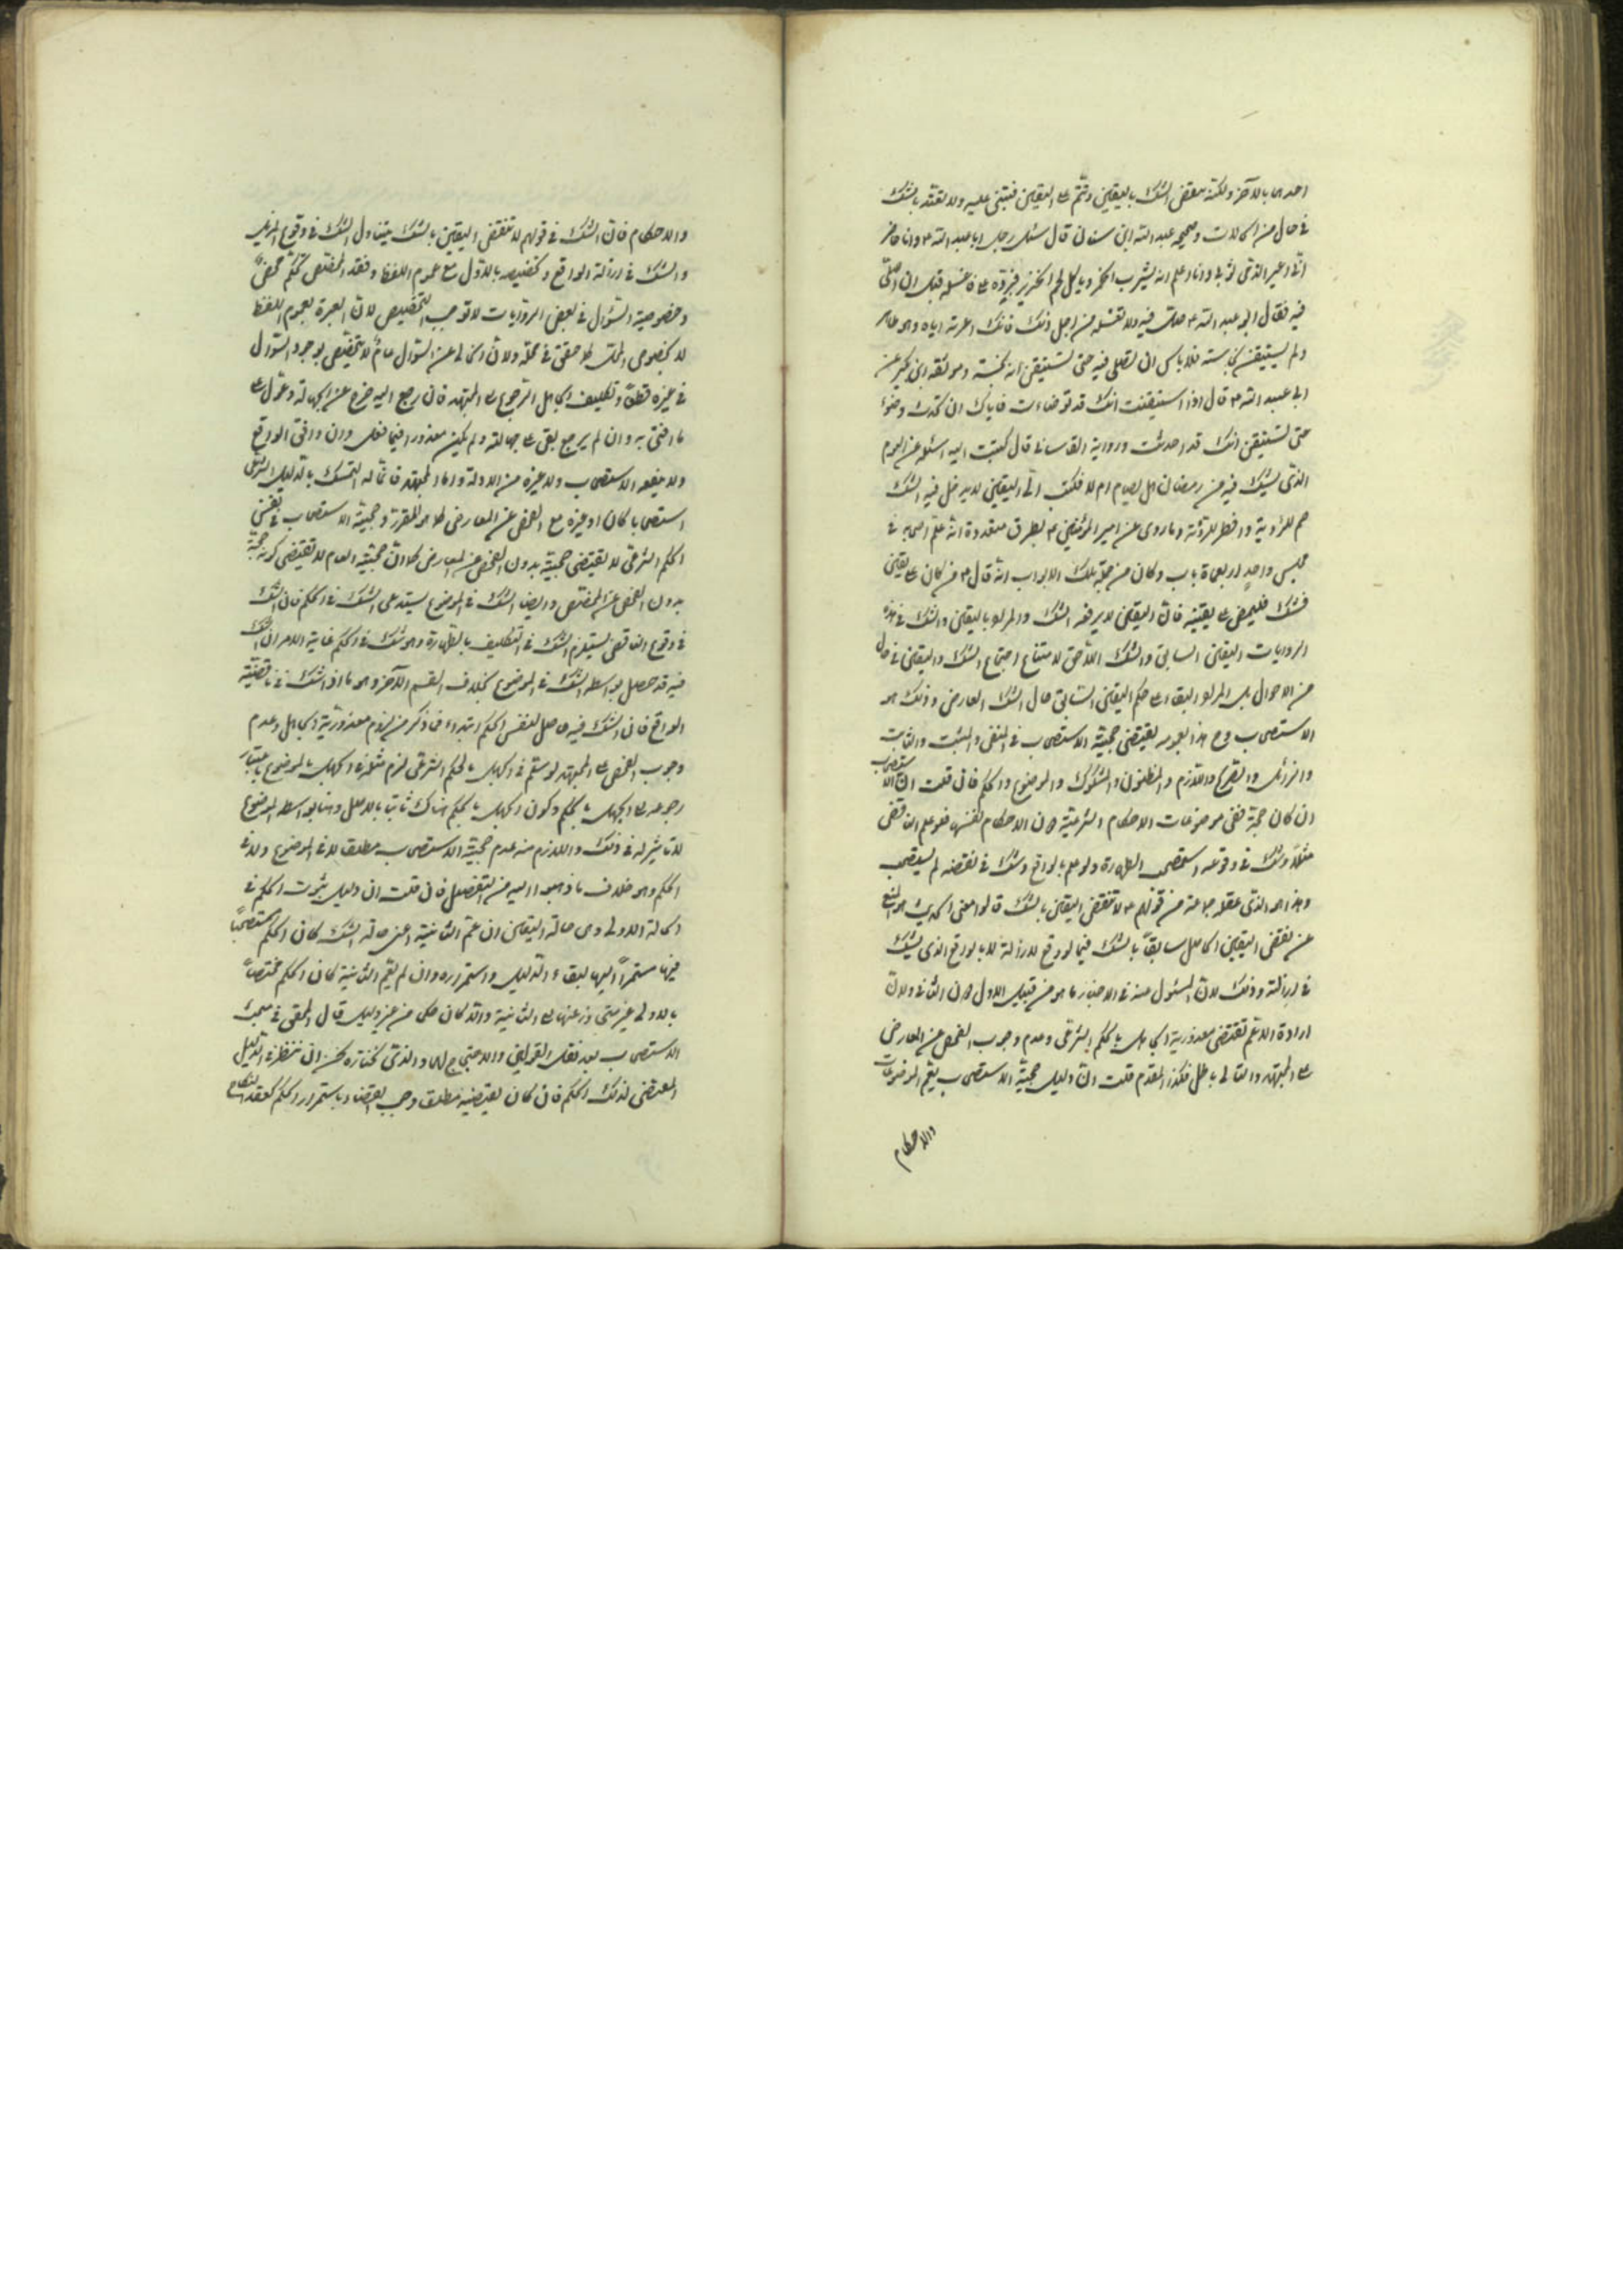 احدهما بالآخر ولكنه ينقض الشك باليقين ويتم على اليقين فيبنى عليه ولا يعتد بالشك
في حال من الحالات وصحيحة عبد الله ابن سنان قال سئل رجل ابا عبد الله ع وانا حاضر
انى اعير الذمى ثوبى وانا اعلم انه يشرب الخمر وياكل لحم الخنزير فيرده على فاغسله قبل ان اصلى
فيه فقال ابو عبد الله ع صل فيه ولا تغسله من اجل ذلك فانك اعرته اياه وهو طاهر
ولم يستيقن نجاسته فلا باس ان تصلى فيه حتى تستيقن انه نجسه وموثقة ابن بكير عن
ابى عبد الله ع قال اذا استيقنت انك قد توضات فاياك ان تحدث وضوء
حتى تستيقن انك قد احدثت ورواية القاسانى قال كتبت اليه اسئله عن اليوم
الذى يشك فيه من رمضان هل يصام ام لا فكتب ع اليقين لا يدخل فيه الشك
صم للرؤية وافطر للرؤية وما روى عن امير المؤمنين ع بطرق متعددة انه علم اصحابه في
مجلس واحد اربعماة باب وكان من جملة تلك الابواب انه قال ع من كان على يقين
فشك فليمض على يقينه فان اليقين لا يدفعه الشك والمراد باليقين والشك في هذه
الروايات اليقين السابق والشك اللاحق لامتناع اجتماع الشك واليقين في حال
من الاحوال بل المراد البقاء على حكم اليقين السابق حال الشك العارض وذلك هو
الاستصحاب وح هذا بعمومه يقتضى حجية الاستصحاب في المنفى والمثبت والثابت
والزائل والمقارن واللازم والمظنون والمشكوك والموضوع والحكم فان قلت ان الاستصحاب
ان كان حجة ففى موضوعات الاحكام الشرعية دون الاحكام نفسها فلو علم الناقض
مثلا وشك في وقوعه استصحب الطهارة ولو علم بالواقع وشك في نقضه لم يستصحب
وهذا هو الذى عقلوه من قولهم ع لا تنقض اليقين بالشك قالوا معنى الحديث هو المنع
عن نقض اليقين الحاصل سابقا بالشك فيما لو وقع لازاله لا بالواقع الذى يشك
في ازالته وذلك لان المسئول عنه في الاخبار ما هو من قبيل الاول دون الثانى ولان
ارادة الاعم تقتضى معذورية الجاهل بالحكم الشرعى وعدم وجوب الفحص عن المعارض
على المجتهد والتالى باطل فكذا المقدم قلت ان دليل حجية الاستصحاب يعم الموضوعات
والاحكام
والاحكام فان الشك في قولهم لا تنقض اليقين بالشك يتناول الشك في وقوع المزيل
والشك في ازالة الواقع وتخصيصه بالاول مع عموم اللفظ وفقد المخصص تحكم محض
وخصوصية السؤال في بعض الروايات لا توجب التخصيص لان العبرة بعموم اللفظ
لا بخصوص المحل كما حقق في محله ولان الخالى عن السؤال عام لا يتخصص بوجود السؤال
في غيره قطعا وتكليف الجاهل الرجوع الى المجتهد فان رجع اليه خرج عن الجهالة وعول على
ما افتى به وان لم يرجع بقى على جهالته ولم يكن معذورا فيما فعل وان وافق الواقع
ولا ينفعه الاستصحاب ولا غيره من الادلة واما المجتهد فانما له التمسك بالدليل الشرعى
استصحابا كان او غيره مع الفحص عن المعارض كما هو المقرر وحجية الاستصحاب في نفس
الحكم الشرعى لا تقتضى حجيته بدون الفحص عن المعارض كما ان حجية العام لا تقتضى كونه حجة
بدون الفحص عن المخصص وايضا الشك في الموضوع يستدعى الشك في الحكم فان الشك
في وقوع الناقض يستلزم الشك في التكليف بالطهارة وهو شك في الحكم غاية الامر ان الشك
فيه قد حصل بواسطة الشك في الموضوع بخلاف القسم الآخر وهو ما اذا شك في ناقضية
الواقع فان الشك فيه حاصل لنفس الحكم ابتداء فما ذكر من لزوم معذورية الجاهل وعدم
وجوب الفحص على المجتهد لو ستم في الجهل بالحكم الشرعى لزم مثله في الجهل بالموضوع باعتبار
رجوعه الى الجهل بالحكم وكون الجهل بالحكم هناك ثابتا بالاصل وهنا بواسطة الموضوع
لا تاثير له في ذلك واللازم منه عدم حجية الاستصحاب مطلقا لا في الموضوع ولا في
الحكم وهو خلاف ما ذهبوا اليه من التفصيل فان قلت ان دليل ثبوت الحكم في
الحالة الاولى وهى حالة اليقين ان عم الثانية اعنى حالة الشك كان الحكم مستصحبا
فيها مستمرا اليها لبقاء الدليل واستمراره وان لم يعم الثانية كان الحكم مختصا
بالاولى غير متجاوز عنها الى الثانية والا لكان حكما من غير دليل قال المحقق في مبحث
الاستصحاب بعد نقل القولين والاحتجاج لهما والذى نختاره نحن ان ننظر في الدليل
المقتضى لذلك الحكم فان كان يقتضيه مطلقا وجب القضاء باستمرار الحكم كعقد النكاح